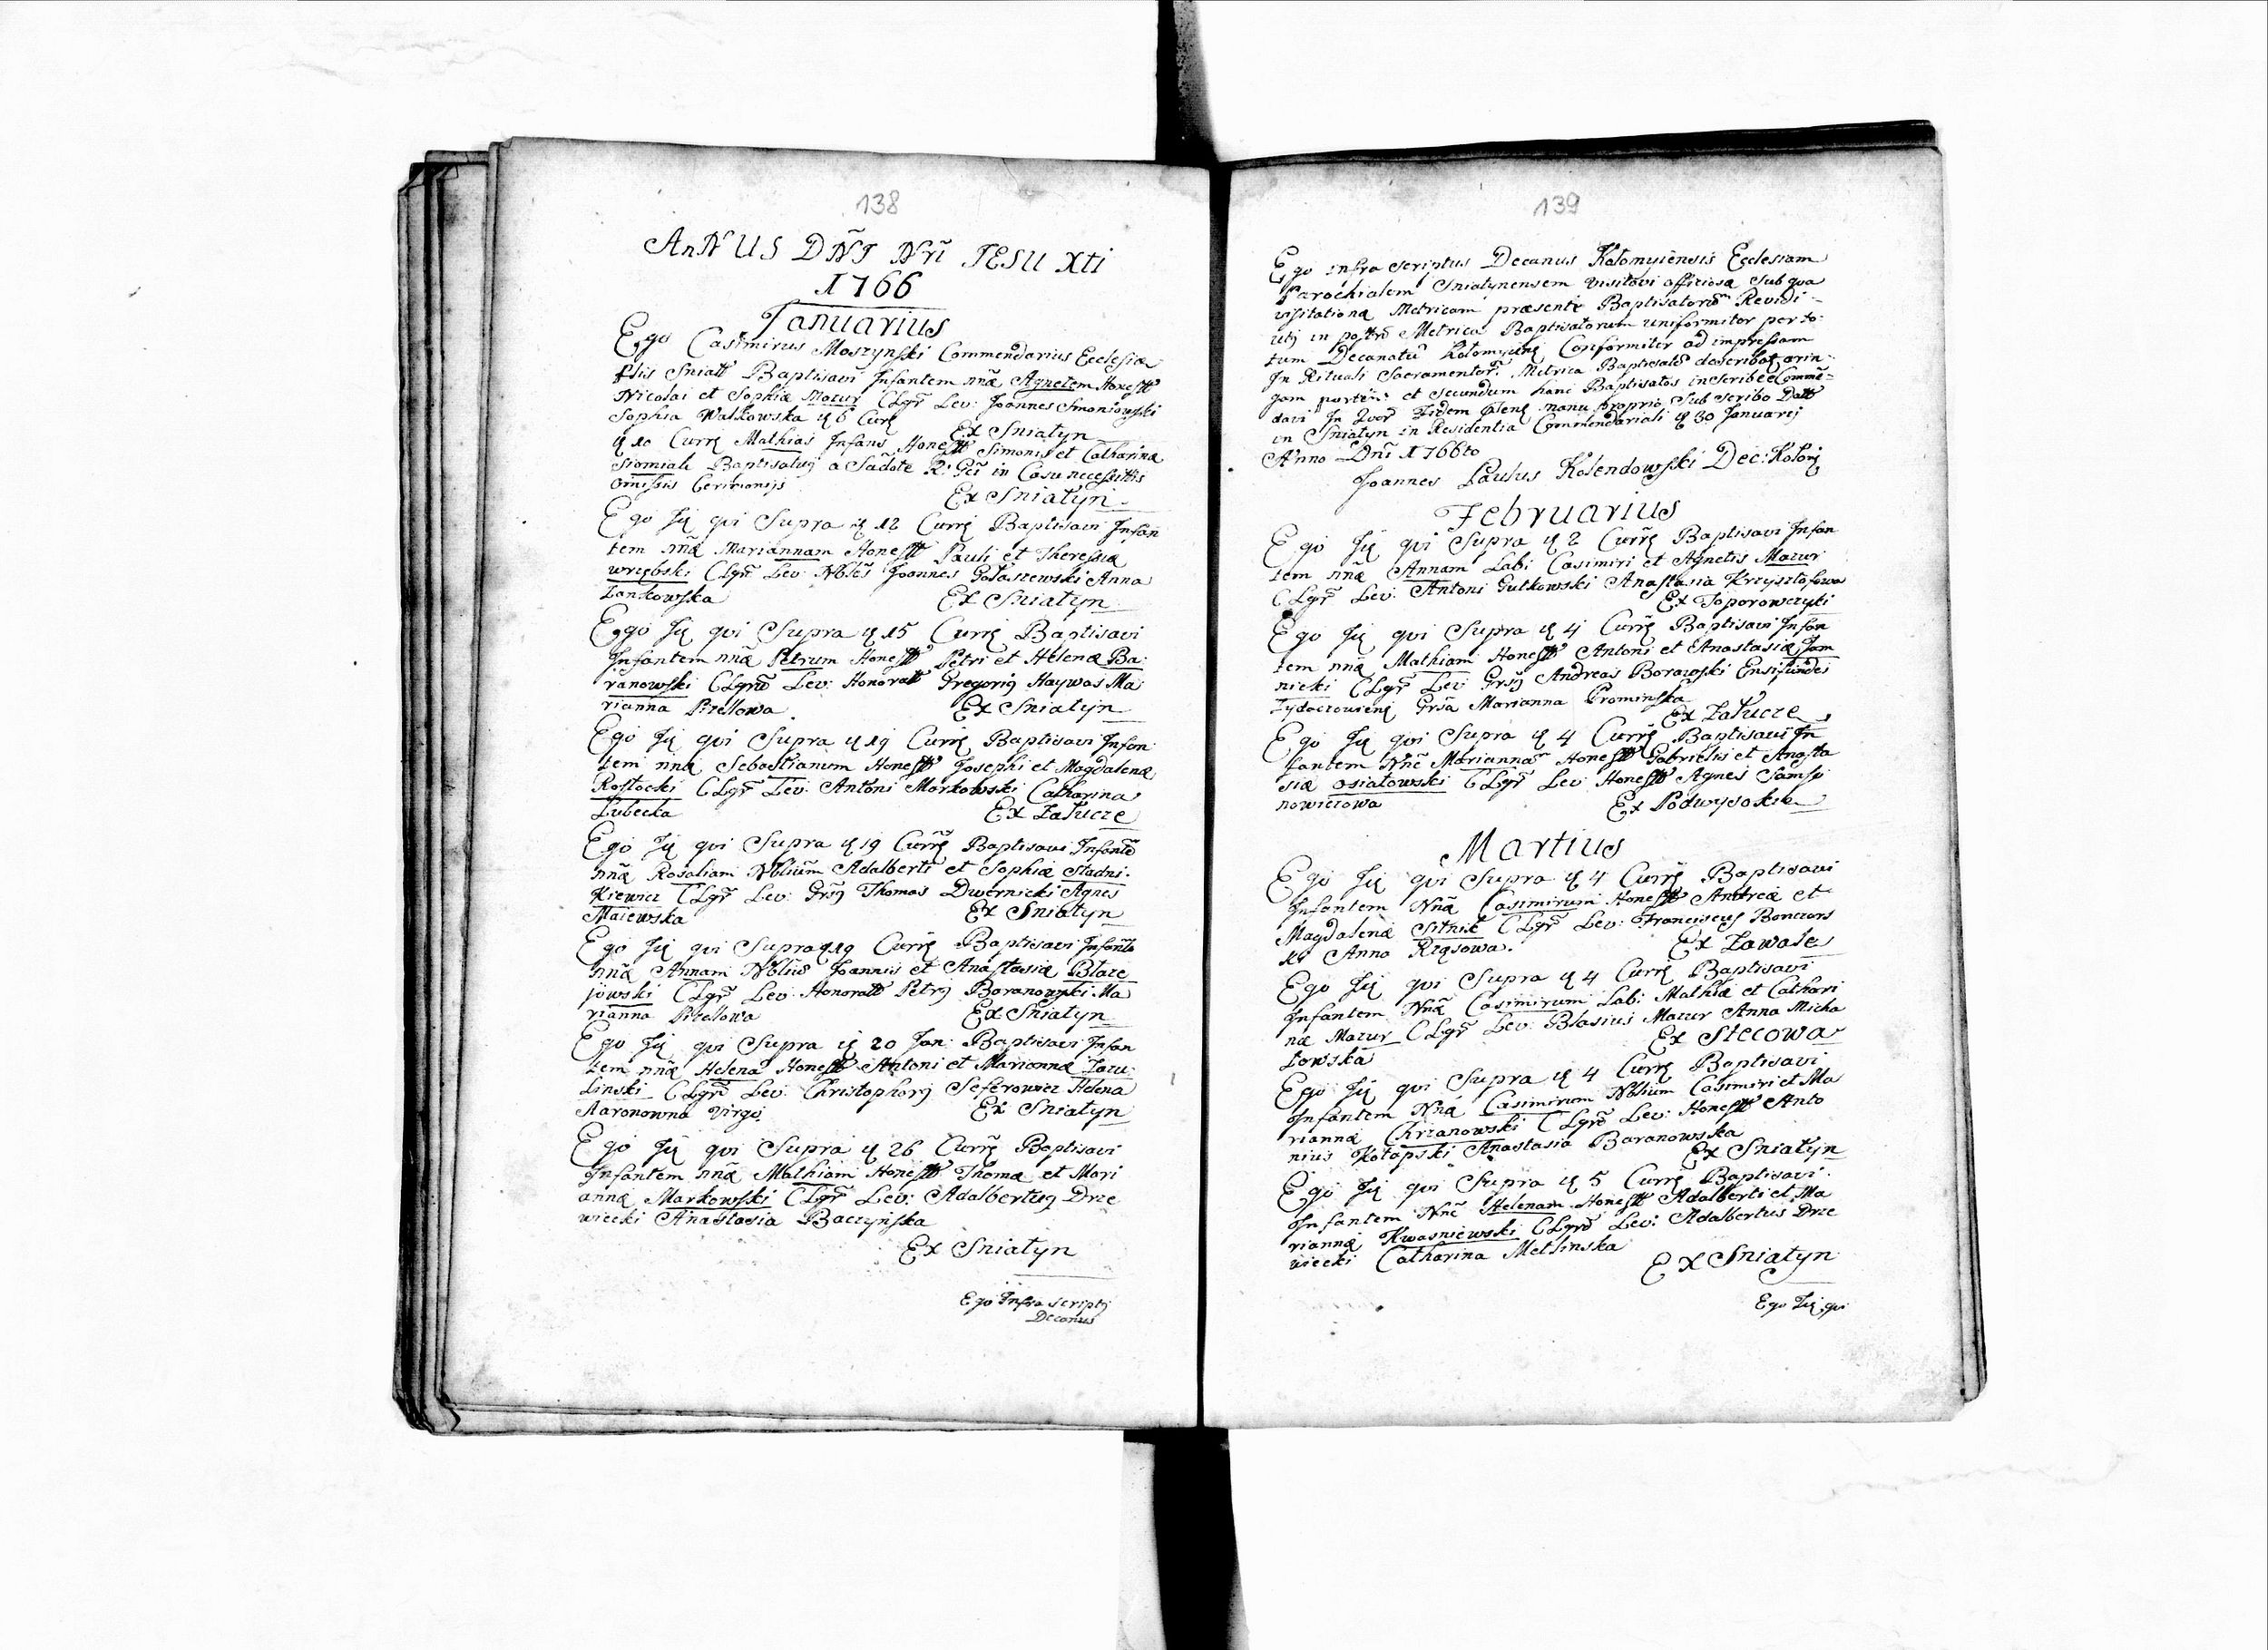 138
AnNUS DÑI Nrĩ IESU Xti
1766
Januarius
Ego Casimirus Moszynski Commendarius Ecclesiæ
Baptisavi Infantem nnæ Agnetem Honestt
Nicolai et Sophiæ Mazur CLgr Lev: Joannes Smoniowski
Sophia Walkowska 6 Curr
Ex Sniatyn
10 Curr Mathias Infans Honestt Simonis et Catharinæ
Siomiak Baptisatus a Sadote R: Gri in Casu necessittis
omissis Cerimonijs
Ex Sniatyn
Ego Iq qvi Supra 12 Curr Baptisavi Infan
tem nnæ Mariannam Honestt Pauli et Theresiæ
wrębski CLgr Lev: Nbles Joannes Gołaszewski Anna
Zankowska
Ex Sniatyn
Ego Iq qvi Supra 15 Curr Baptisavi
Infantem nnæ Petrum Honestt Petri et Helenæ Ba:
ranowski CLgr Lev: Honoratt Gregorius Haywas Ma
rianna Pizellowa
Ex Sniatyn
Ego Iq qvi Supra 19 Curr Baptisavi Infan
tem nnæ Sebastianum Honestt Josephi et Magdalenæ
Rostocki CLgr Lev: Antoni Markowski Catharina
Lubecka
Ex Załucze
Ego Iq qvi Supra 19 Curr Baptisavi Infante
nnæ Rosaliam Nblium Adalberti et Sophiæ Stadni:
kiewicz CLgr Lev: Grsus Thomas Dwernicki Agnes
Maiewska
Ex Sniatyn
Ego Iq qvi Supra 19 Curr Baptisavi Infante
nnæ Annam Nbliu Joannis et Anastasiæ Błaze
jowski CLgr Lev: Honoratt Petrus Baranowski Ma
rianna Pizellowa
Ex Sniatyn
Ego Iq qvi Supra 20 Jan: Baptisavi Infan
tem nnæ Helena Honestt Antoni et Mariannæ Zazu
linski CLgr Lev: Christophorus Seferowicz Helena
Aaronowna Virgo
Ex Sniatyn
Ego Iq qvi Supra 26 Curr Baptisavi
Infantem nnæ Mathiam Honestt Thomæ et Mari
annæ Markowski CLgr Lev: Adalbertus Drze
wiecki Anastasia Baczynska
Ex Sniatyn
Ego Infra scriptus
Decanus
139
Ego infra scriptus Decanus Kołomyiensis Ecclesiam
Parochialem Sniatynensem visitavi officiosæ Sub qva
visitationæ Metricam præsente Baptisatoru Revidi
Metrica Baptisatorum uniformiter per to:
tum Decanatu Conformiter ad impressam
In Rituali Sacramentor: Metrica
et secundum hanc Baptisatos inscribe Comme:
manu proprio Sub Scribo Datt
in Sniatyn in Residentia Commendariali 30 Januarij
Anno Dni 1766to
Joannes Paulus Kolendowski Dec: Kołom
Februarius
Ego Iq qvi Supra 2 Curr Baptisavi Infan
tem nnæ Annam Lab: Casimiri et Agnetis Mazur
CLgr Lev: Antoni Gutkowski Anastasia Krzysztofowa
Ex Toporowczyki
Ego Iq qvi Supra 4 Curr Baptisavi Infan
tem nnæ Mathiam Honestt Antoni et Anastasiæ Jam
nicki CLgr Lev: Grsus Andreas Borawski Ensifundei
Grsa Marianna Prominska
Ex Załucze
Ego Iq qvi Supra 4 Curr Baptisavi In
fantem Nnæ Marianna Honestt Gabrielis et Anasta
siæ osiatowski CLgr Lev: Honestt Agnes Samsi
nowiczowa
Ex Podwysokie
Martius
Ego Iq qvi Supra 4 Curr Baptisavi
Infantem Nnæ Casimirum Honestt Andreæ et
Magdalenæ Sitnik CLgr Lev: Franciscus
Anna Rząsowa.
Ex Zawale
Ego Iq qvi Supra 4 Curr Baptisavi
Infantem Nnæ Casimirum Lab: Mathiæ et Cathari
næ Mazur CLgr Lev: Blasius Mazur Anna Micha
łowska
Ex Stecowa
Ego Iq qvi Supra 4 Curr Baptisavi
Infantem Nnæ Casimirum Nblium Casimiri et Ma
riannæ Chrzanowski CLgr Lev: Honestt Anto
nius Kotapski Anastasia Baranowska
Ex Sniatyn
Ego Iq qvi Supra 5 Curr Baptisavi
Infantem Nnæ Helenam Honestt Adalberti et Ma
riannæ Kwasniewski CLgr Lev: Adalbertus Drze
wiecki Catharina Metlinska
Ex Sniatyn
Ego Iq qvi